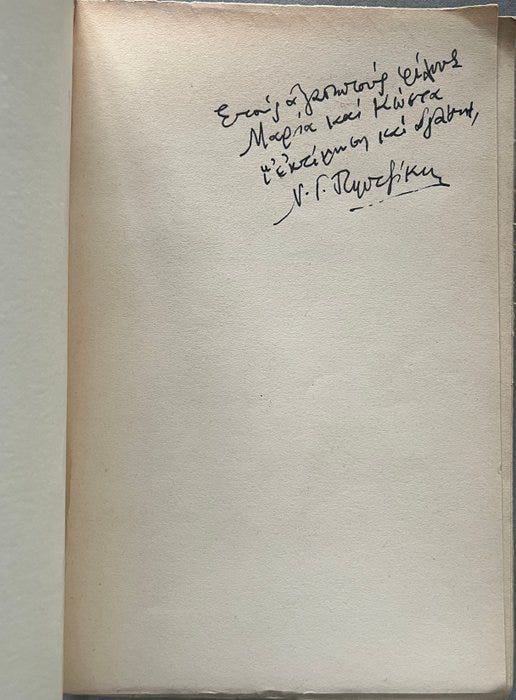 Στούς ἀγαπητούς φίλους
Μαρία καί Κώστα
μ' ἐκτίμηση καί ἀγάπη,
Ν. Γ. Πεντζίκης